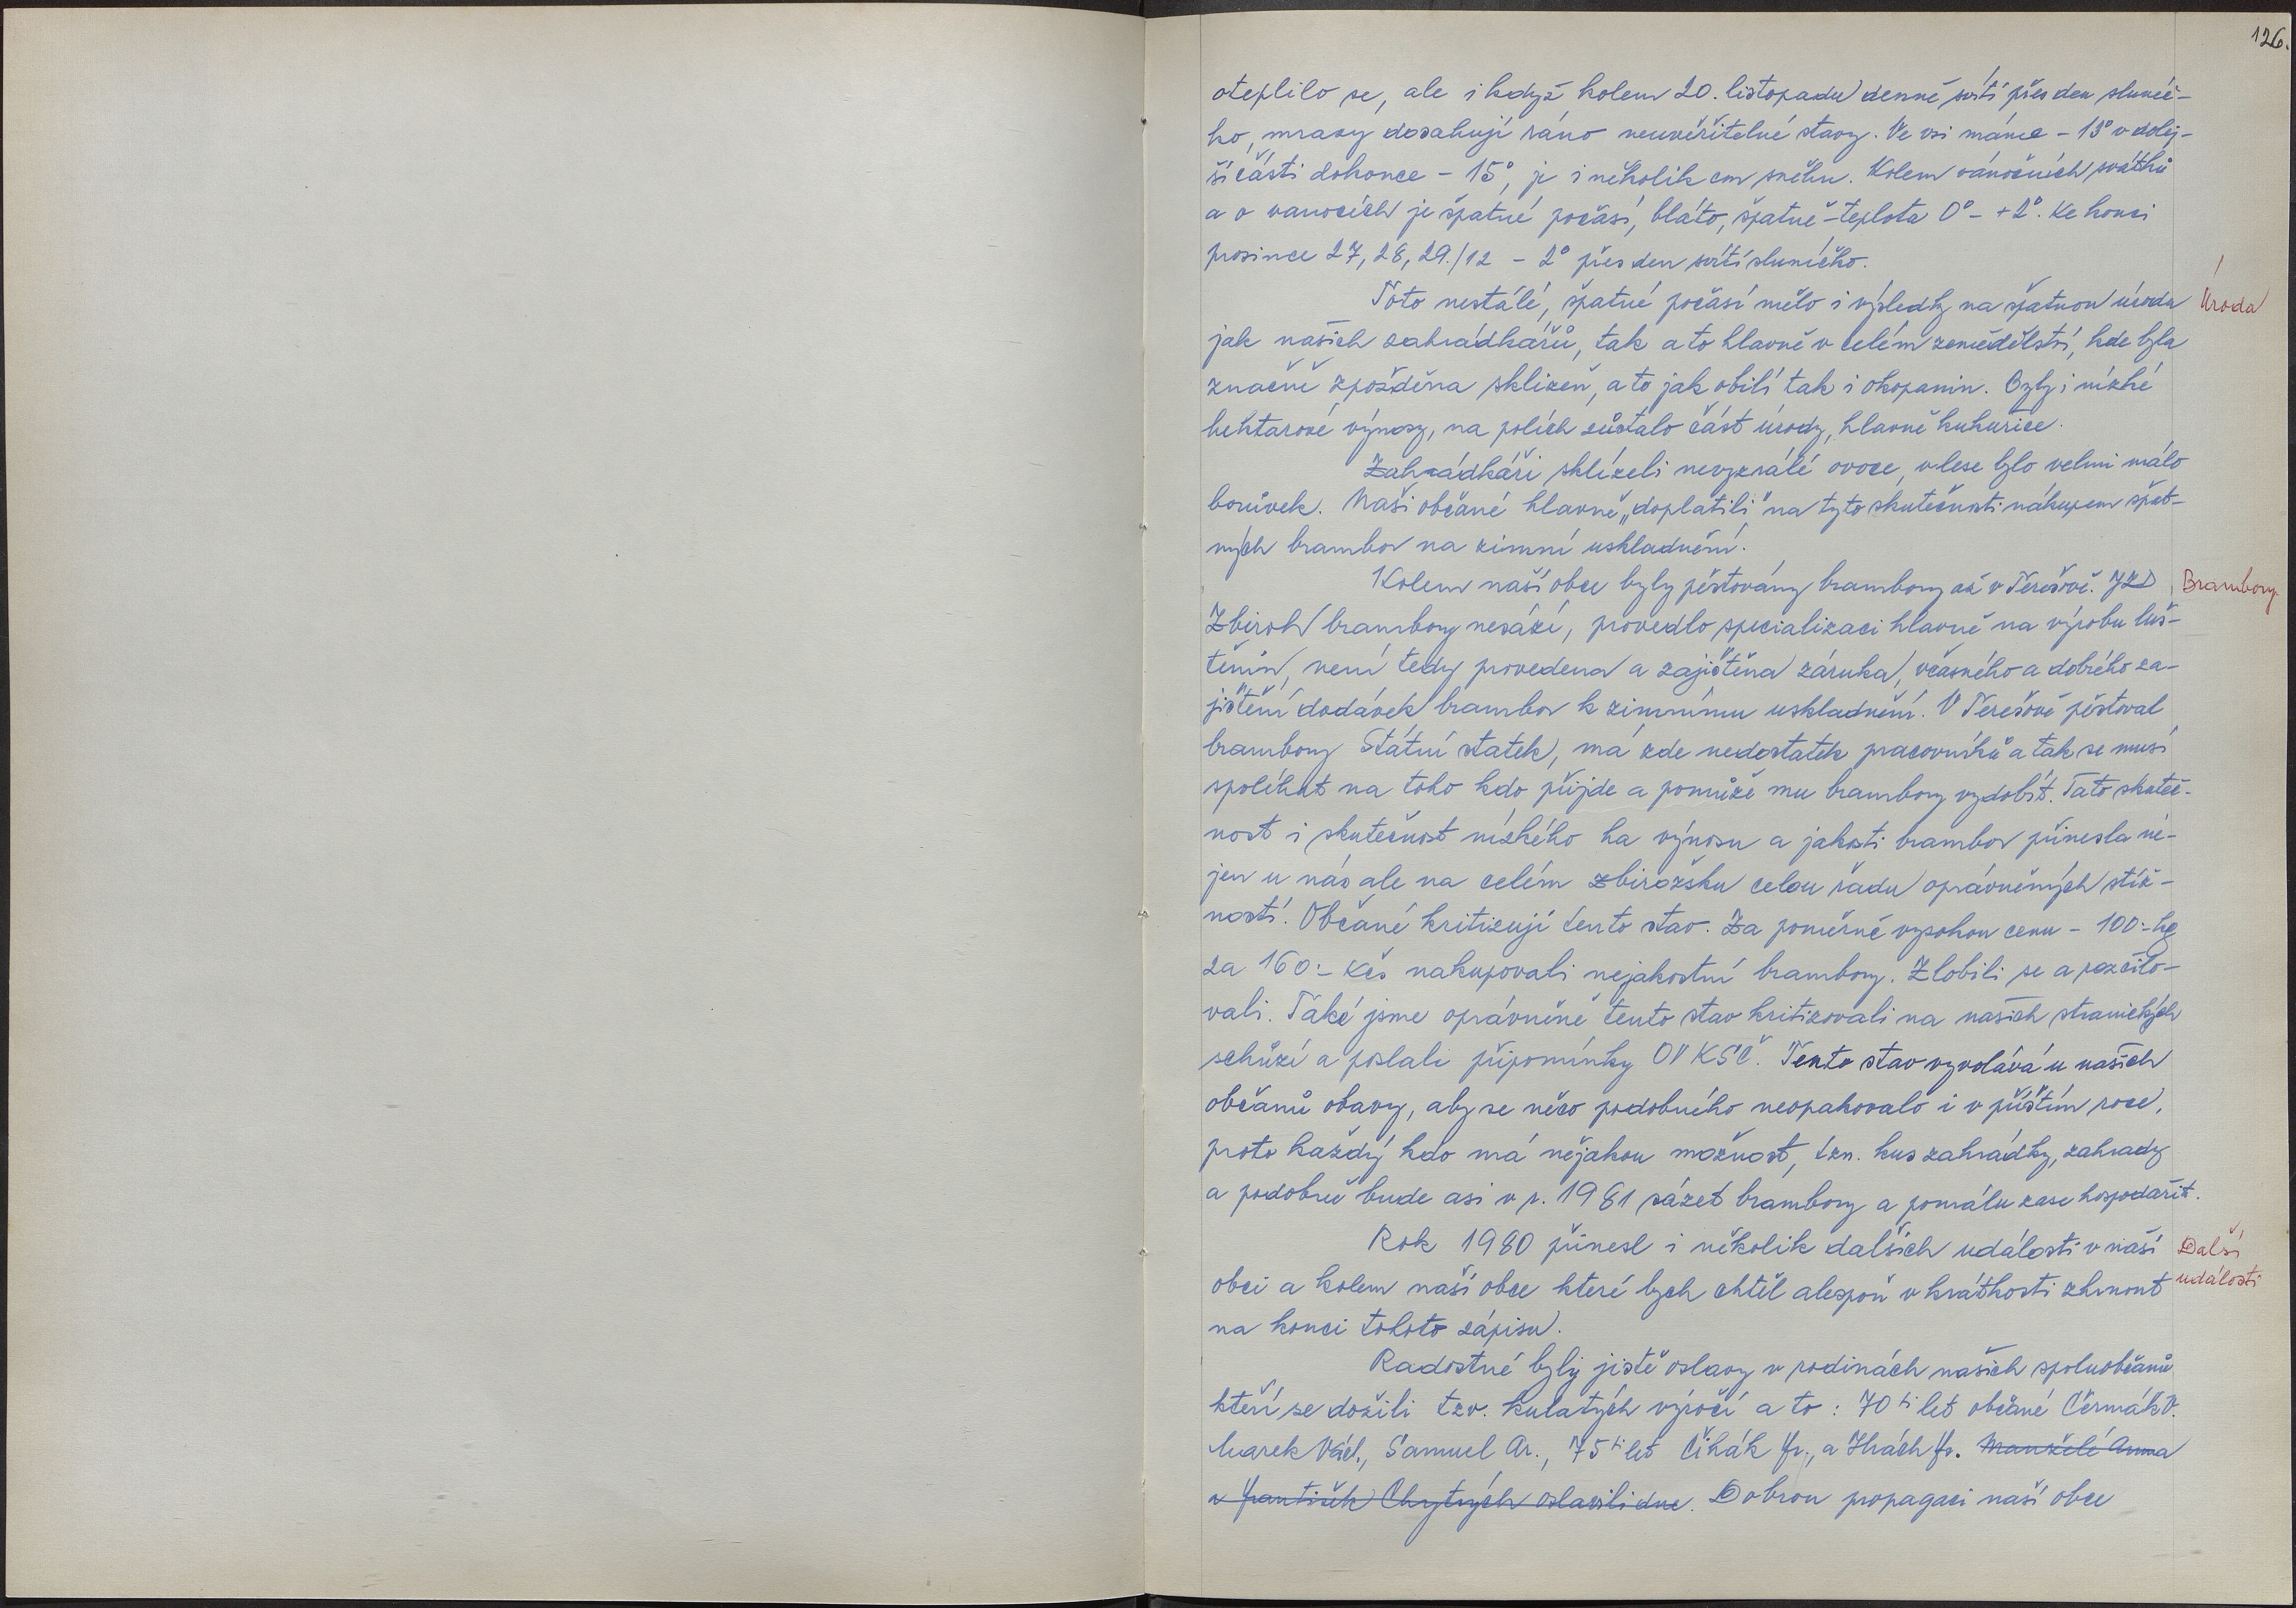 126.
oteplilo se, ale i když kolem 20. listopadu denně svítí přes den slunéč-
ko, mrazy dosahují ráno neuvěřitelné stavy. Ve vsi máme - 13° v dolej-
ší části dokonce - 15°, je i několik cm sněhu. Kolem vánočních svátků
a o vanocích je špatné počasí, bláto, špatně - teplota 0° - +2°. Ke konci
prosince 27, 28, 29./12 - 2° přes den svítí sluníčko.
Toto nestálé, špatné počasí mělo i výsledky na špatnou úrodu
Úroda
jak našich zahrádkářů, tak a to hlavně v celém zemědělství, kde byla
značně zpožděna sklizeň, a to jak obilí tak i okopanin. Byly i nízké
hektarové výnosy, na polích zůstalo část úrody, hlavně kukuřice.
Zahrádkáři sklízeli nevyzrálé ovoce, v lese bylo velmi málo
borůvek. Naši občané hlavně „doplatili" na tyto skutečnosti nákupem špat-
ných brambor na zimní uskladnění.
Kolem naší obce byly pěstovány brambory až v Terešově. JZD
Brambory
Zbiroh brambory nesází, provedlo specializaci hlavně na výrobu luš-
těnin, není tedy provedena a zajištěna záruka, včasného a dobrého za-
jištění dodávek brambor k zimnímu uskladnění. V Terešově pěstoval
brambory Státní statek, má zde nedostatek pracovníků a tak se musí
spoléhat na toho kdo přijde a pomůže mu brambory vydobít. Tato skuteč-
nost i skutečnost nízkého ha výnosu a jakosti brambor přinesla ne-
jen u nás ale na celém zbirožsku celou řadu oprávněných stíž-
ností. Občané kritizují tento stav. Za poměrně vysokou cenu - 100:- kg
za 160:- Kčs nakupovali nejakostní brambory. Zlobili se a rozčilo-
vali. Také jsme oprávněně tento stav kritizovali na našich stranických
schůzí a poslali připomínky OV KSČ. Tento stav vyvolává u našich
občanů obavy, aby se něco podobného neopakovalo i v příštím roce,
proto každý kdo má nějakou možnost, tzn. kus zahrádky, zahrady
a podobně bude asi v r. 1981 sázet brambory a pomálu zase hospodařit.
Rok 1980 přinesl i několik dalších událostí v naší
Další
události
obci a kolem naší obce které bych chtěl alespoň v krátkosti zhrnout
na konci tohoto zápisu.
Radostné byly jistě oslavy v rodinách našich spoluobčanů
kteří se dožili tzv. kulatých výročí a to : 70 ti let občané Čermák V.
Marek Václ., Samuel Ar., 75 ti let Čihák Fr., a Hrách Fr. Manželé Anna
a František Chytrých oslavili dne. Dobrou propagaci naší obce